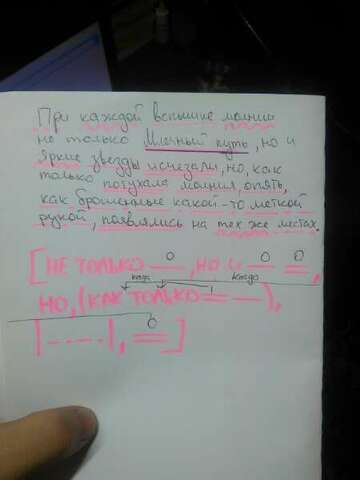 При каждой вспышке молнии
не только Млечный путь, но и
яркие звезды исчезали, но, как
только потухала молния, опять,
как брошенные какой-то меткой
рукой, появлялись на тех же местах.
[НЕ ТОЛЬКО O, НО И O O
когда когда
НО, (КАК ТОЛЬКО = —),
|.....|, O =]